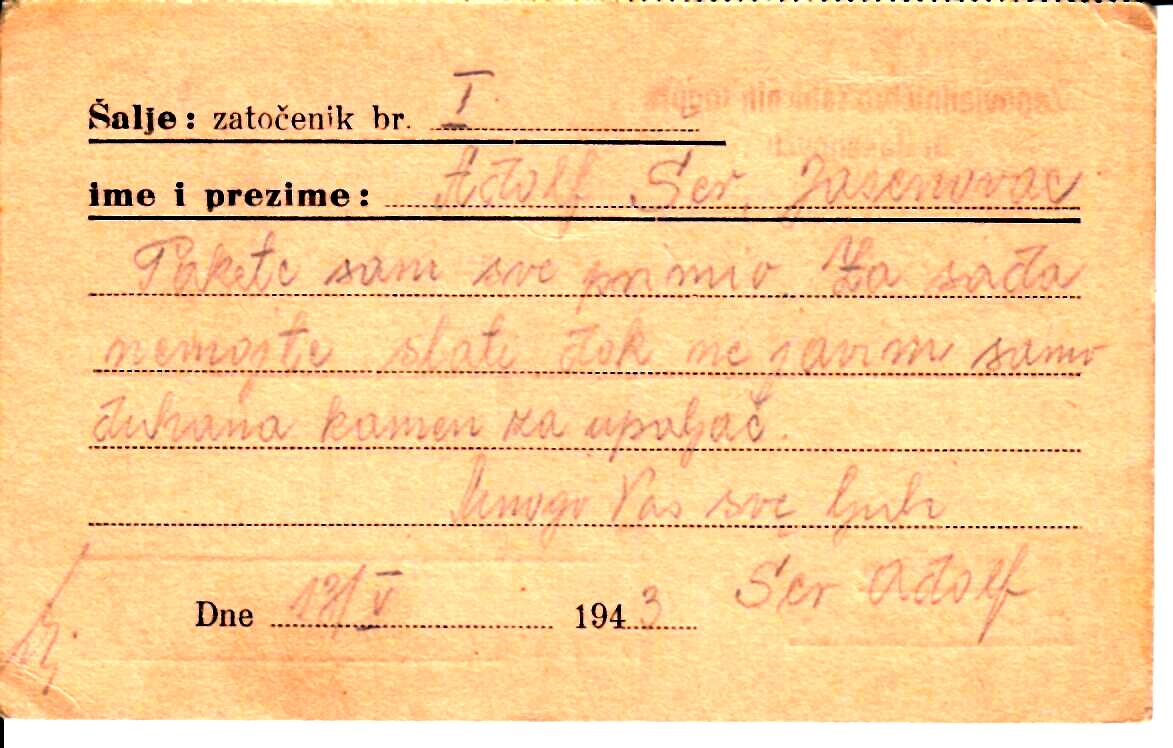 Šalje: zatočenik br. I
ime i prezime: Adolf Ser, Jasenovac
Pakete sam sve primio. Za sada
nemojte slati dok ne javim samo
duhana kamen za upaljač.
Mnogo Vas sve ljubi
Ser Adolf
Dne 13/V 1943